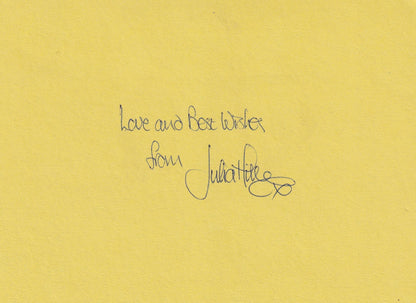 Love and Best Wishes
from Julia Hills